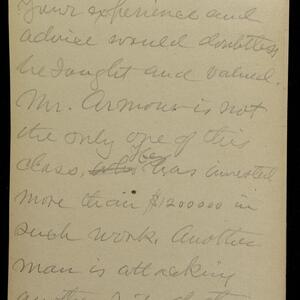 Your experience and
advice would doubtless
be sought and valued.
Mr. Armour is not
the only one of this
class, He has invested
more than $1200000 in
such work. Another
man is attacking
another